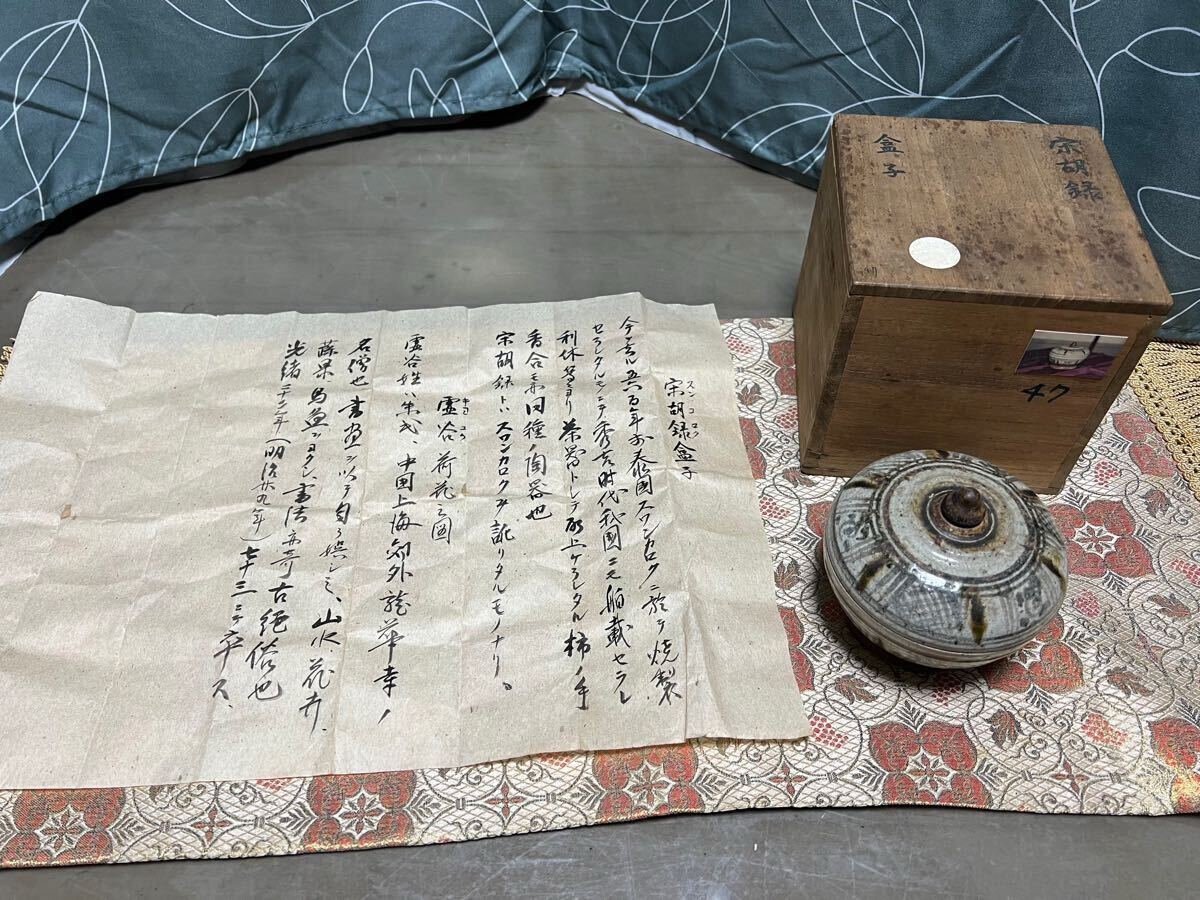 宋胡録
盒子
47
スンコロク
宋胡録盒子
今ヲ去ル 五六百年前泰国スワンカロクニ於テ焼製
セラレタルモノニテ秀吉時代我国ニモ舶載セラレ
利休等ニヨリ茶器トシテ取上ゲラレタル柿ノ手
香合モ亦同種ノ陶器也
宋胡録トハスワンカロクヲ訛リタルモノナリ。
虚谷荷花之図
虚谷姓ハ朱氏、中国上海郊外龍華寺ノ
名僧也 書画ヲ以テ自ラ娯シミ、山水、花卉、
蔬果 鳥魚ヲヨクシ、書法亦奇古絶俗也
光緒二十二年(明治廿九年)七十三ニテ卒ス、